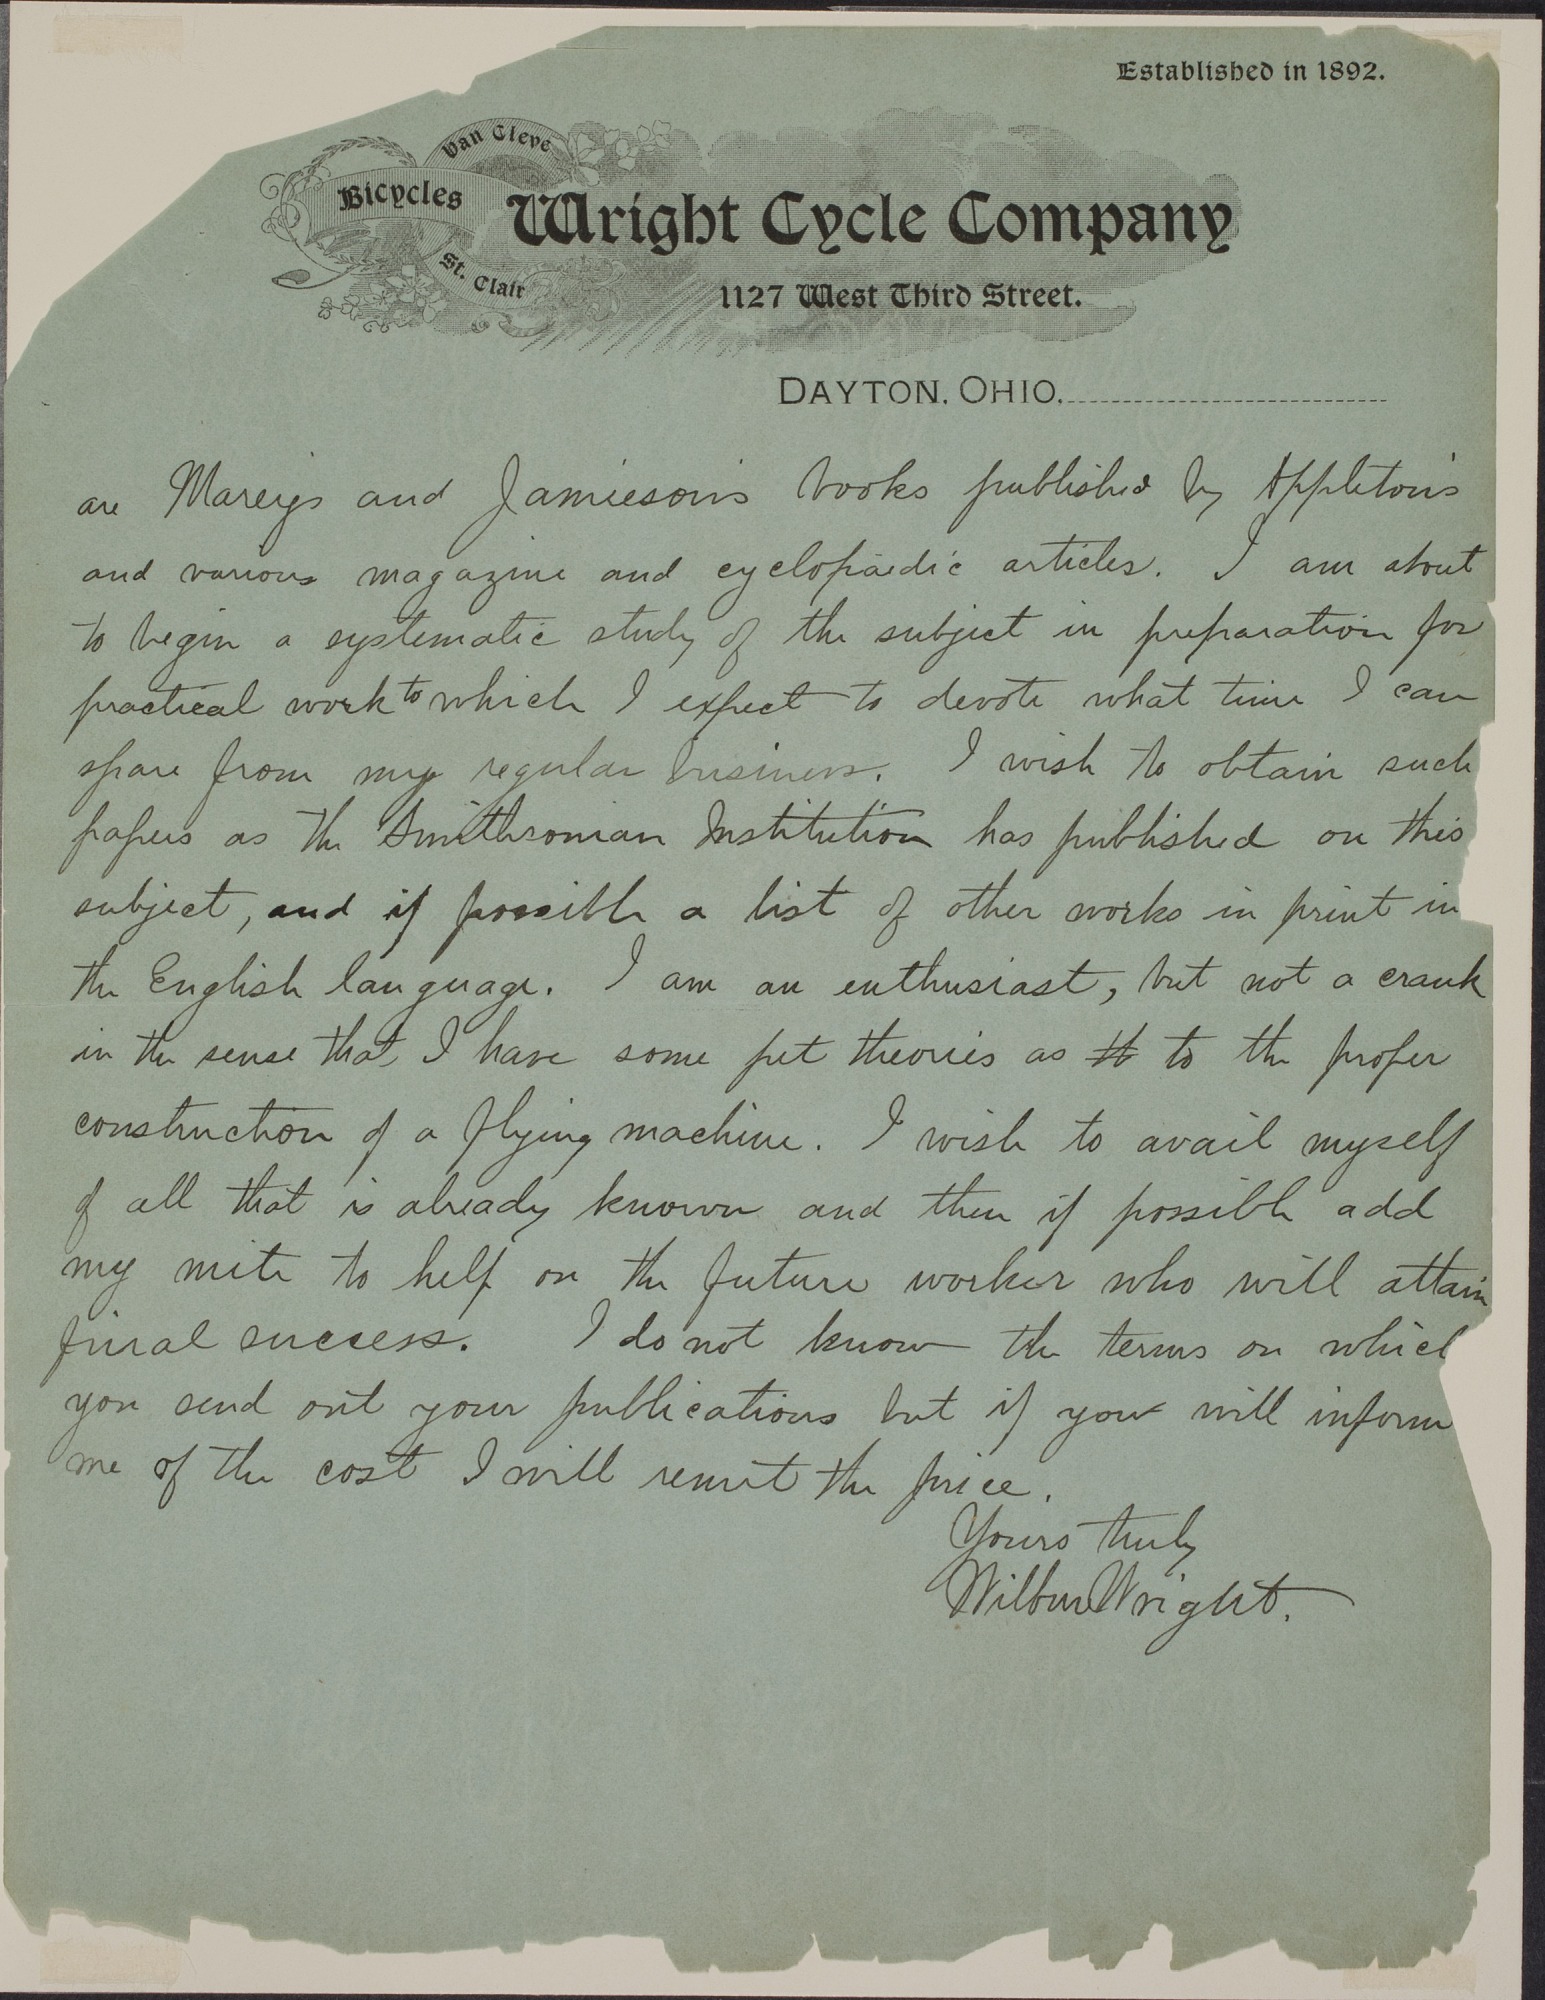 Established in 1892.
Van Cleve
Bicycles
St. Clair
Wright Cycle Company
1127 West Third Street.
DAYTON, OHIO.
are Marey's and Jamieson's books published by Appleton's
and various magazine and cyclopaedic articles. I am about
to begin a systematic study of the subject in preparation for
practical work to which I expect to devote what time I can
spare from my regular business. I wish to obtain such
papers as the Smithsonian Institution has published on this
subject, and if possible a list of other works in print in
the English language. I am an enthusiast, but not a crank
in the sense that I have some pet theories as to the proper
construction of a flying machine. I wish to avail myself
of all that is already known and then if possible add
my mite to help on the future worker who will attain
final success. I do not know the terms on which
you send out your publications but if you will inform
me of the cost I will remit the price.
Yours truly
Wilbur Wright.